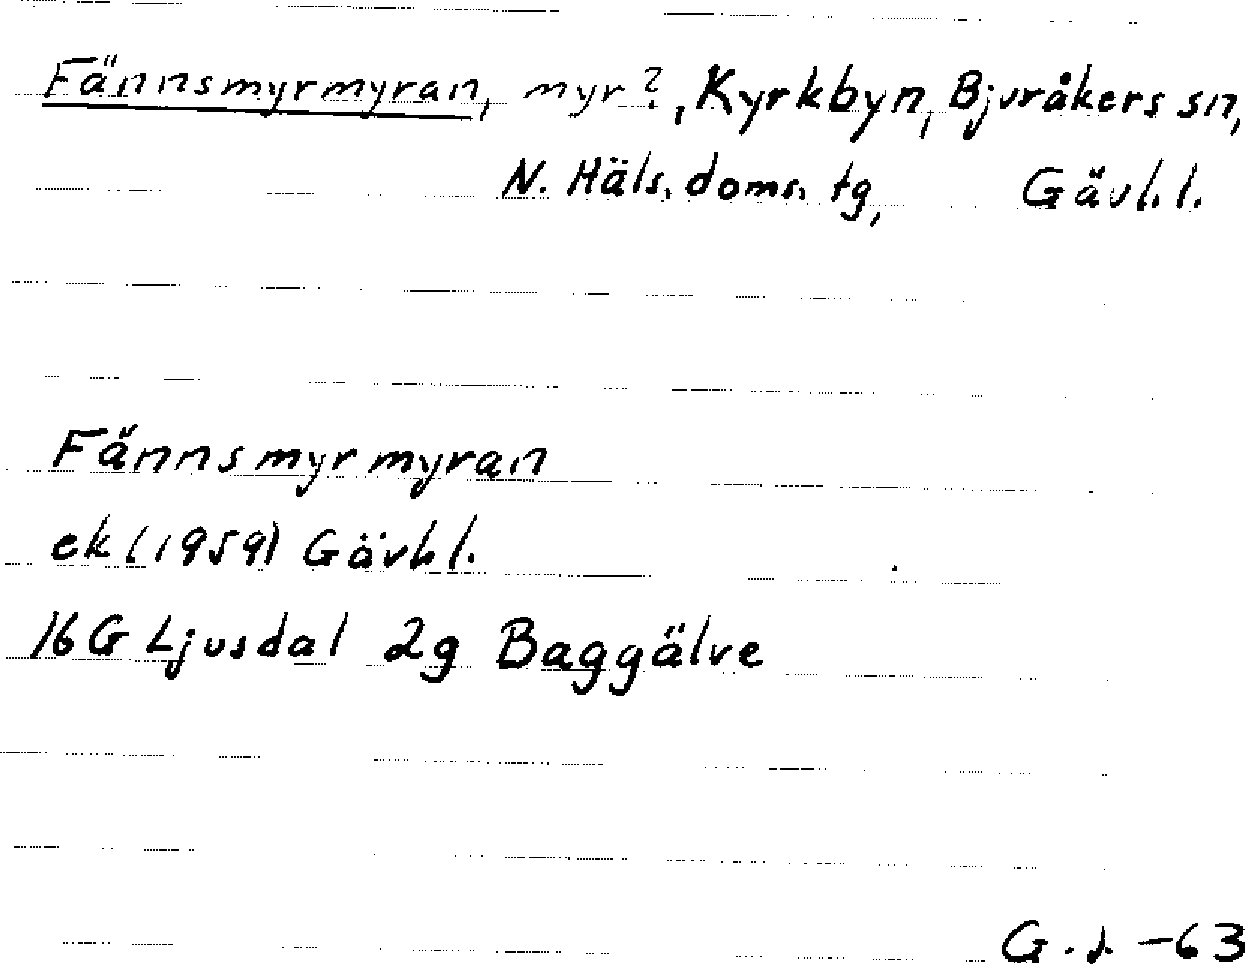 Fännsmyrmyran, myr?, Kyrkbyn, Bjuråkers sn,
N. Häls. doms. tg, Gävl. l.
Fännsmyrmyran
ek (1959) Gävl. l.
16G Ljusdal 2g Baggälve
-63